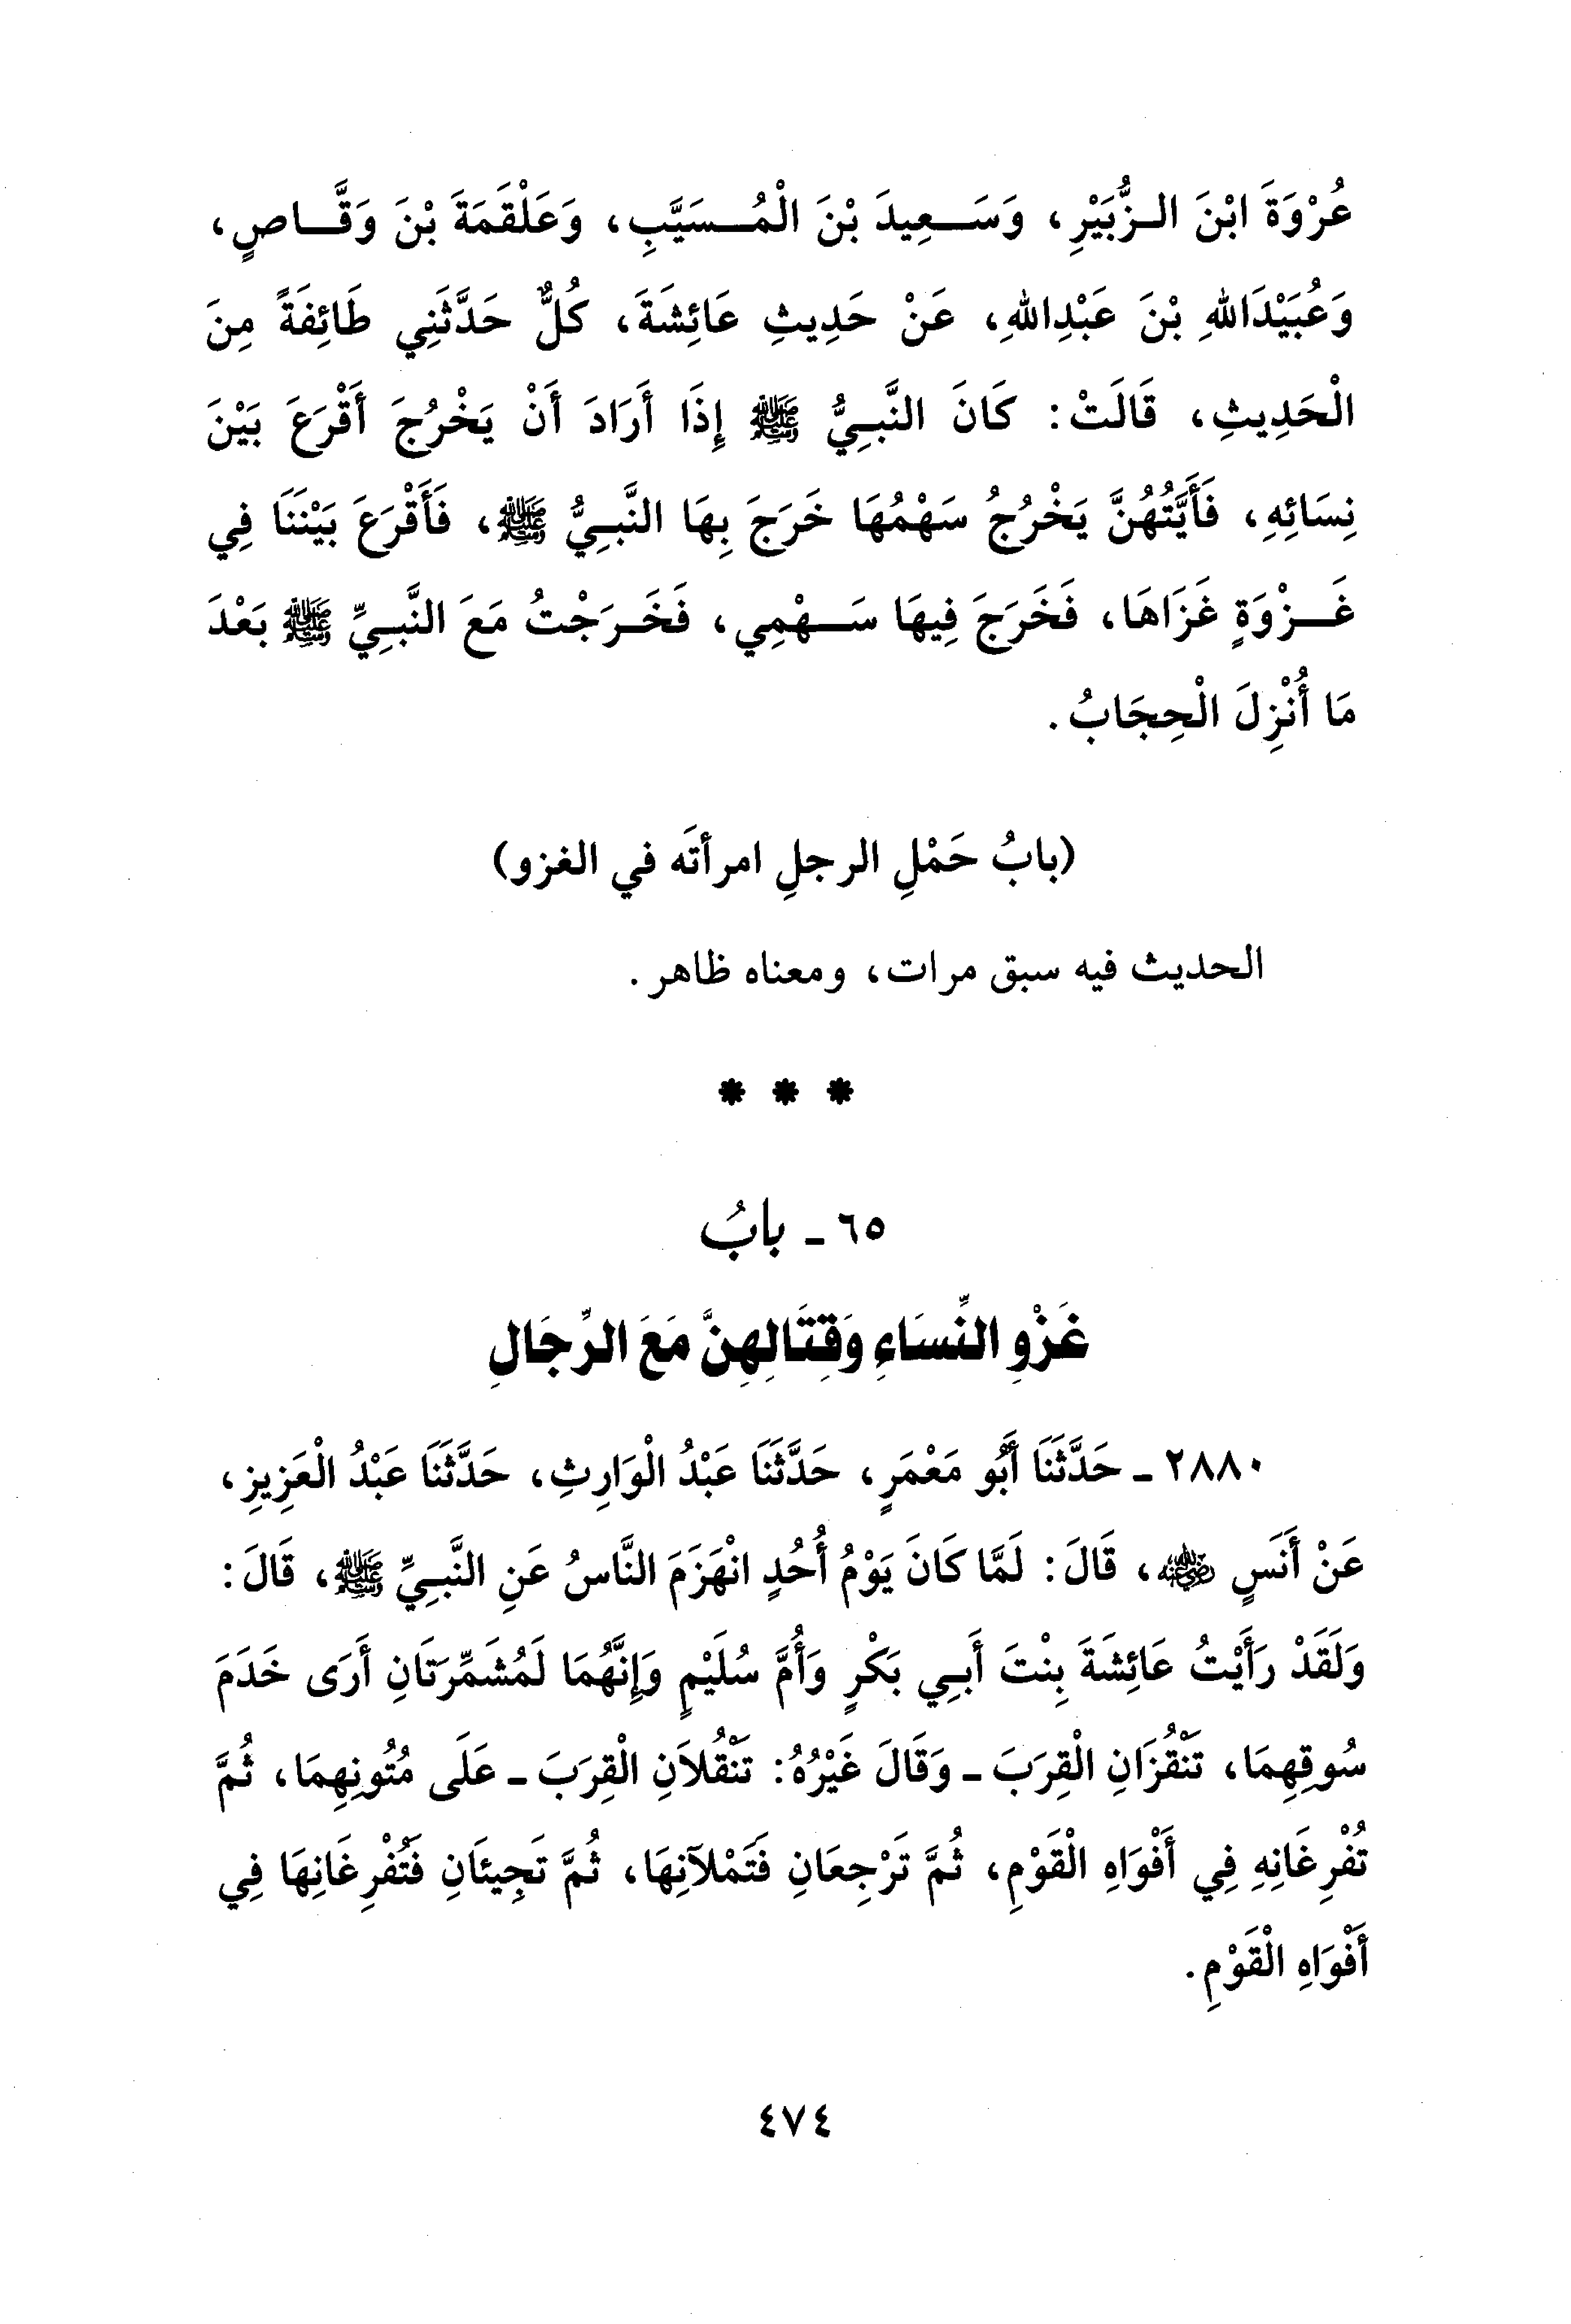 عُرْوَةَ ابْنَ الـزُّبَيْرِ، وَسَـعِيدَ بْنَ الْمُـسَيَّبِ، وَعَلْقَمَةَ بْنَ وَقَّـاصٍ،
وَعُبَيْدَاللهِ بْنَ عَبْدِاللهِ، عَنْ حَدِيثِ عَائِشَةَ، كُلٌّ حَدَّثَنِي طَائِفَةً مِنَ
الْحَدِيثِ، قَالَتْ: كَانَ النَّبِيُّ ﷺ إِذَا أَرَادَ أَنْ يَخْرُجَ أَقْرَعَ بَيْنَ
نِسَائِهِ، فَأَيَّتُهُنَّ يَخْرُجُ سَهْمُهَا خَرَجَ بِهَا النَّبِيُّ ﷺ، فَأَقْرَعَ بَيْنَنَا فِي
غَـزْوَةٍ غَزَاهَا، فَخَرَجَ فِيهَا سَـهْمِي، فَخَـرَجْتُ مَعَ النَّبِيِّ ﷺ بَعْدَ
مَا أُنْزِلَ الْحِجَابُ.
(بابُ حَمْلِ الرجلِ امرأتَه في الغزو)
الحديث فيه سبق مرات، ومعناه ظاهر.
* * *
٦٥ - بابُ
غَزْوِ النِّسَاءِ وَقِتَالِهِنَّ مَعَ الرِّجَالِ
٢٨٨٠ - حَدَّثَنَا أَبُو مَعْمَرٍ، حَدَّثَنَا عَبْدُ الْوَارِثِ، حَدَّثَنَا عَبْدُ الْعَزِيزِ،
عَنْ أَنَسٍ ﵁، قَالَ: لَمَّا كَانَ يَوْمُ أُحُدٍ انْهَزَمَ النَّاسُ عَنِ النَّبِيِّ ﷺ، قَالَ:
وَلَقَدْ رَأَيْتُ عَائِشَةَ بِنْتَ أَبِي بَكْرٍ وَأُمَّ سُلَيْمٍ وَإِنَّهُمَا لَمُشَمِّرَتَانِ أَرَى خَدَمَ
سُوقِهِمَا، تَنْقُزَانِ الْقِرَبَ - وَقَالَ غَيْرُهُ: تَنْقُلاَنِ الْقِرَبَ - عَلَى مُتُونِهِمَا، ثُمَّ
تُفْرِغَانِهِ فِي أَفْوَاهِ الْقَوْمِ، ثُمَّ تَرْجِعَانِ فَتَمْلآنِهَا، ثُمَّ تَجِيئَانِ فَتُفْرِغَانِهَا فِي
أَفْوَاهِ الْقَوْمِ.
٤٧٤